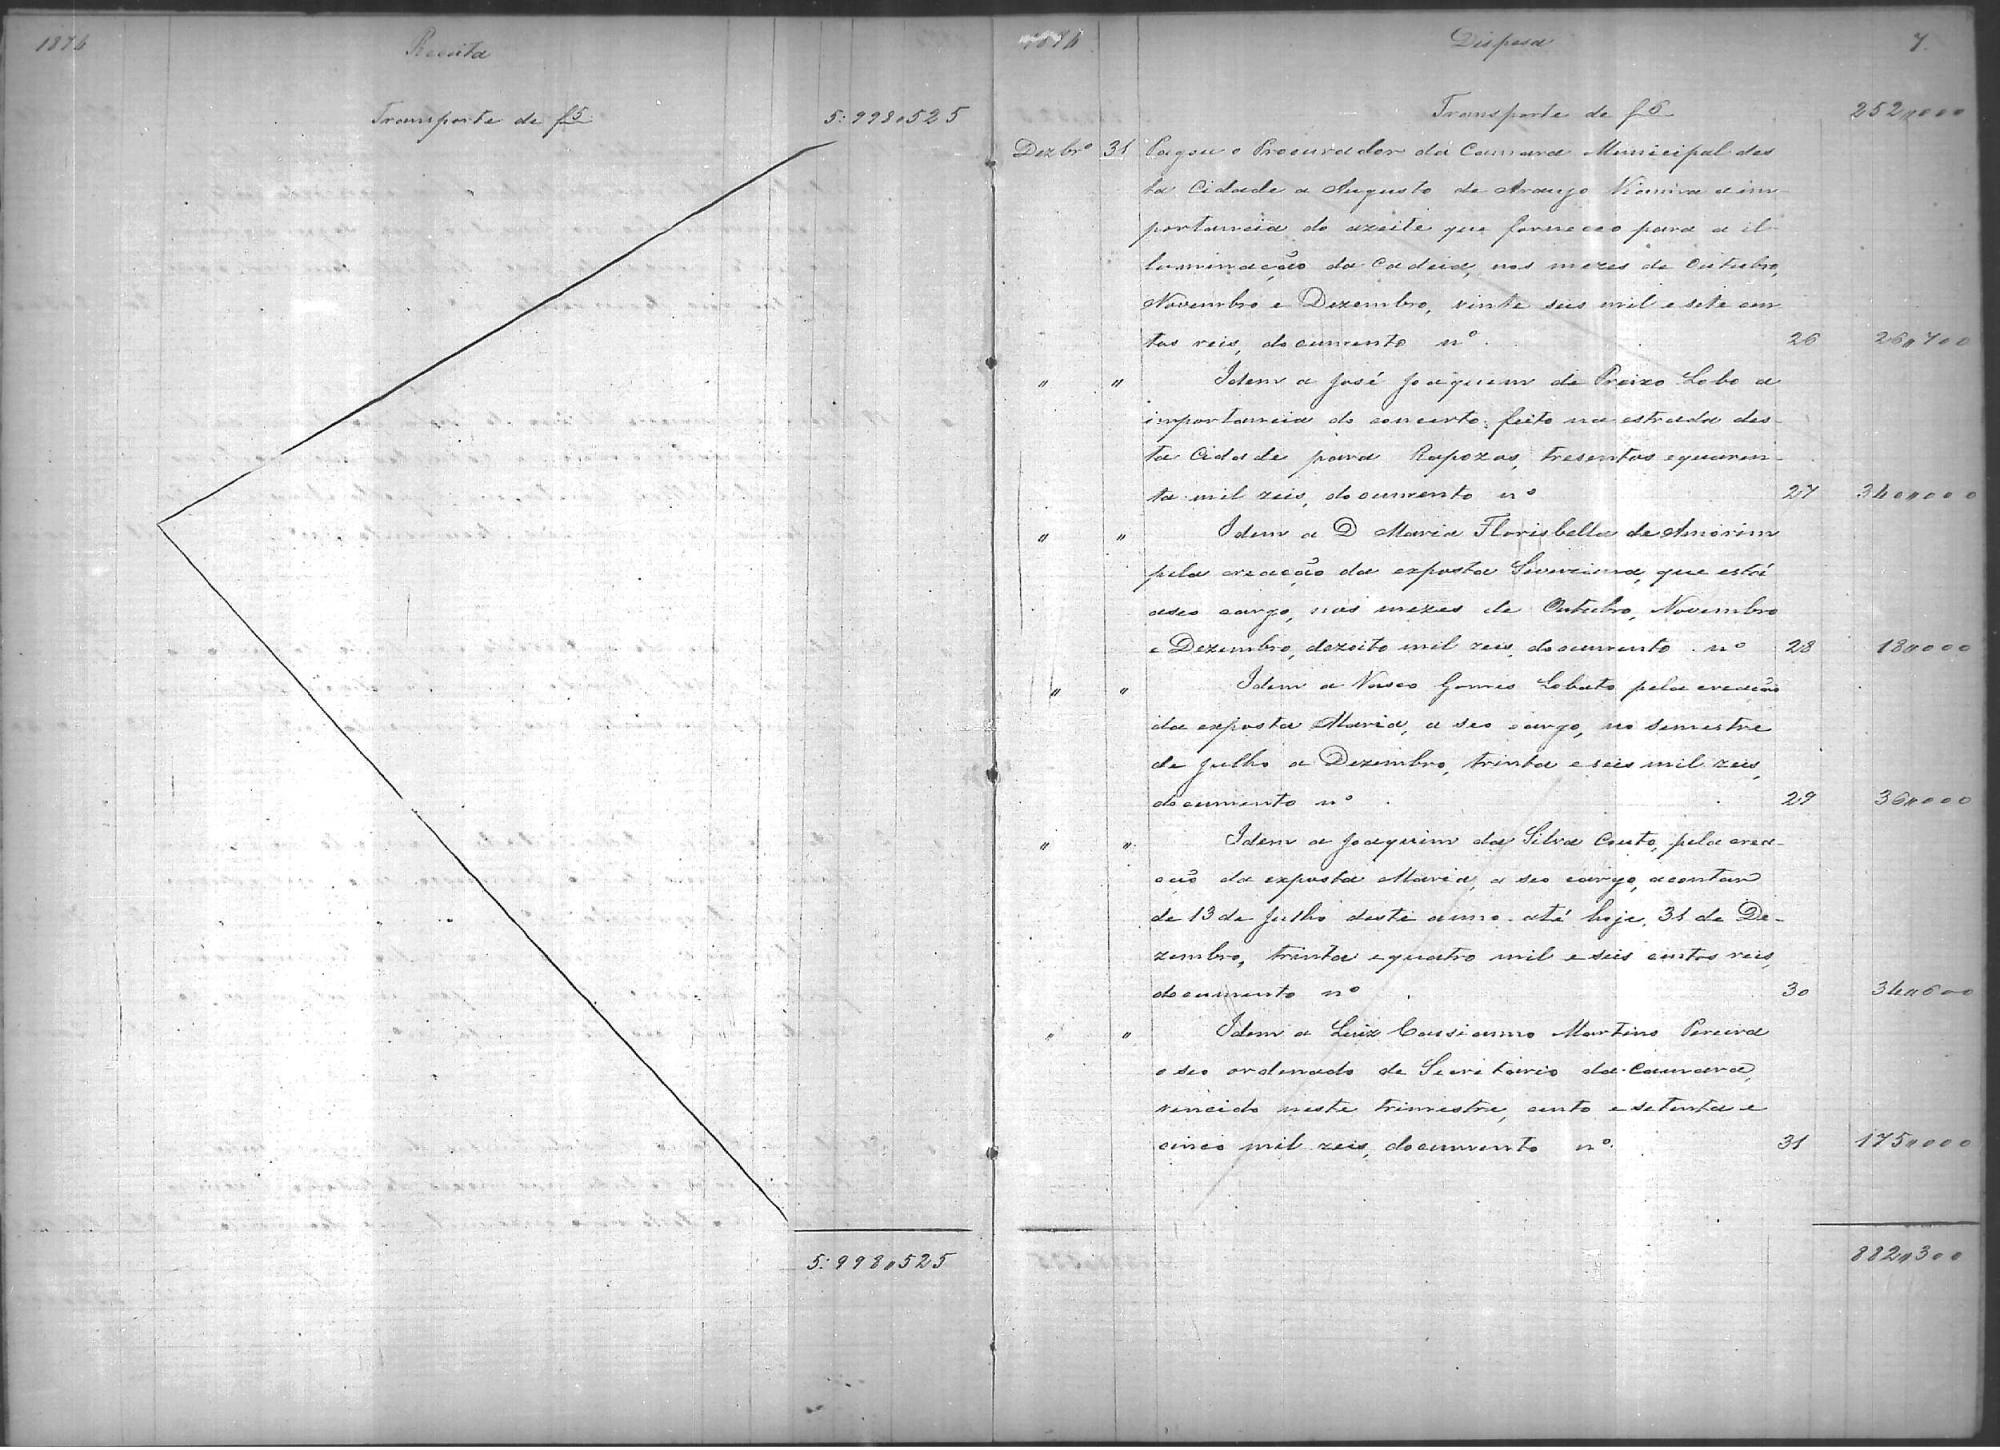 1874
Receita
Transporte de f 5
5:998„525
5:998„525
1874
Dispesa
7.
Transporte de f 6
252„000
Dezbrº 31 Pagou o Procurador da Camara Municipal des
ta Cidade a Augusto de Araujo Vianna a im-
portancia do azeite que forneceo para a il-
luminação da Cadeia, nos mezes de Outubro,
Novembro e Dezembro, vinte seis mil e sete cen
tos reis, documento nº 26 26„700
„ „ Idem a José Joaquim de Lobo a
importancia do concerto feito na estrada des-
ta Cidade para Rapozos, tresentos e quaren-
ta mil reis, documento nº 27 340„000
„ „ Idem a D Maria Florisbella de Amorim
pela creação da exposta Severina, que está
a seo cargo, nos mezes de Outubro, Novembro
e Dezembro, dezoito mil reis, documento nº 28 18„000
„ „ Idem a Vasco Gomes Lobato, pela creação
da exposta Maria, a seo cargo, no semestre
de Julho a Dezembro, trinta e seis mil reis,
documento nº 29 36„000
„ „ Idem a Joaquim da Silva Couto, pela crea-
ção da exposta Maria, a seo cargo, a contar
de 13 de Julho deste anno até hoje, 31 de De-
zembro, trinta e quatro mil e seis centos reis,
documento nº 30 34„600
„ „ Idem a Luiz Cassianno Martins Pereira
o seo ordenado de Secretario da Camara,
vencido neste trimestre, cento e setenta e
cinco mil reis, documento nº 31 175„000
882„300